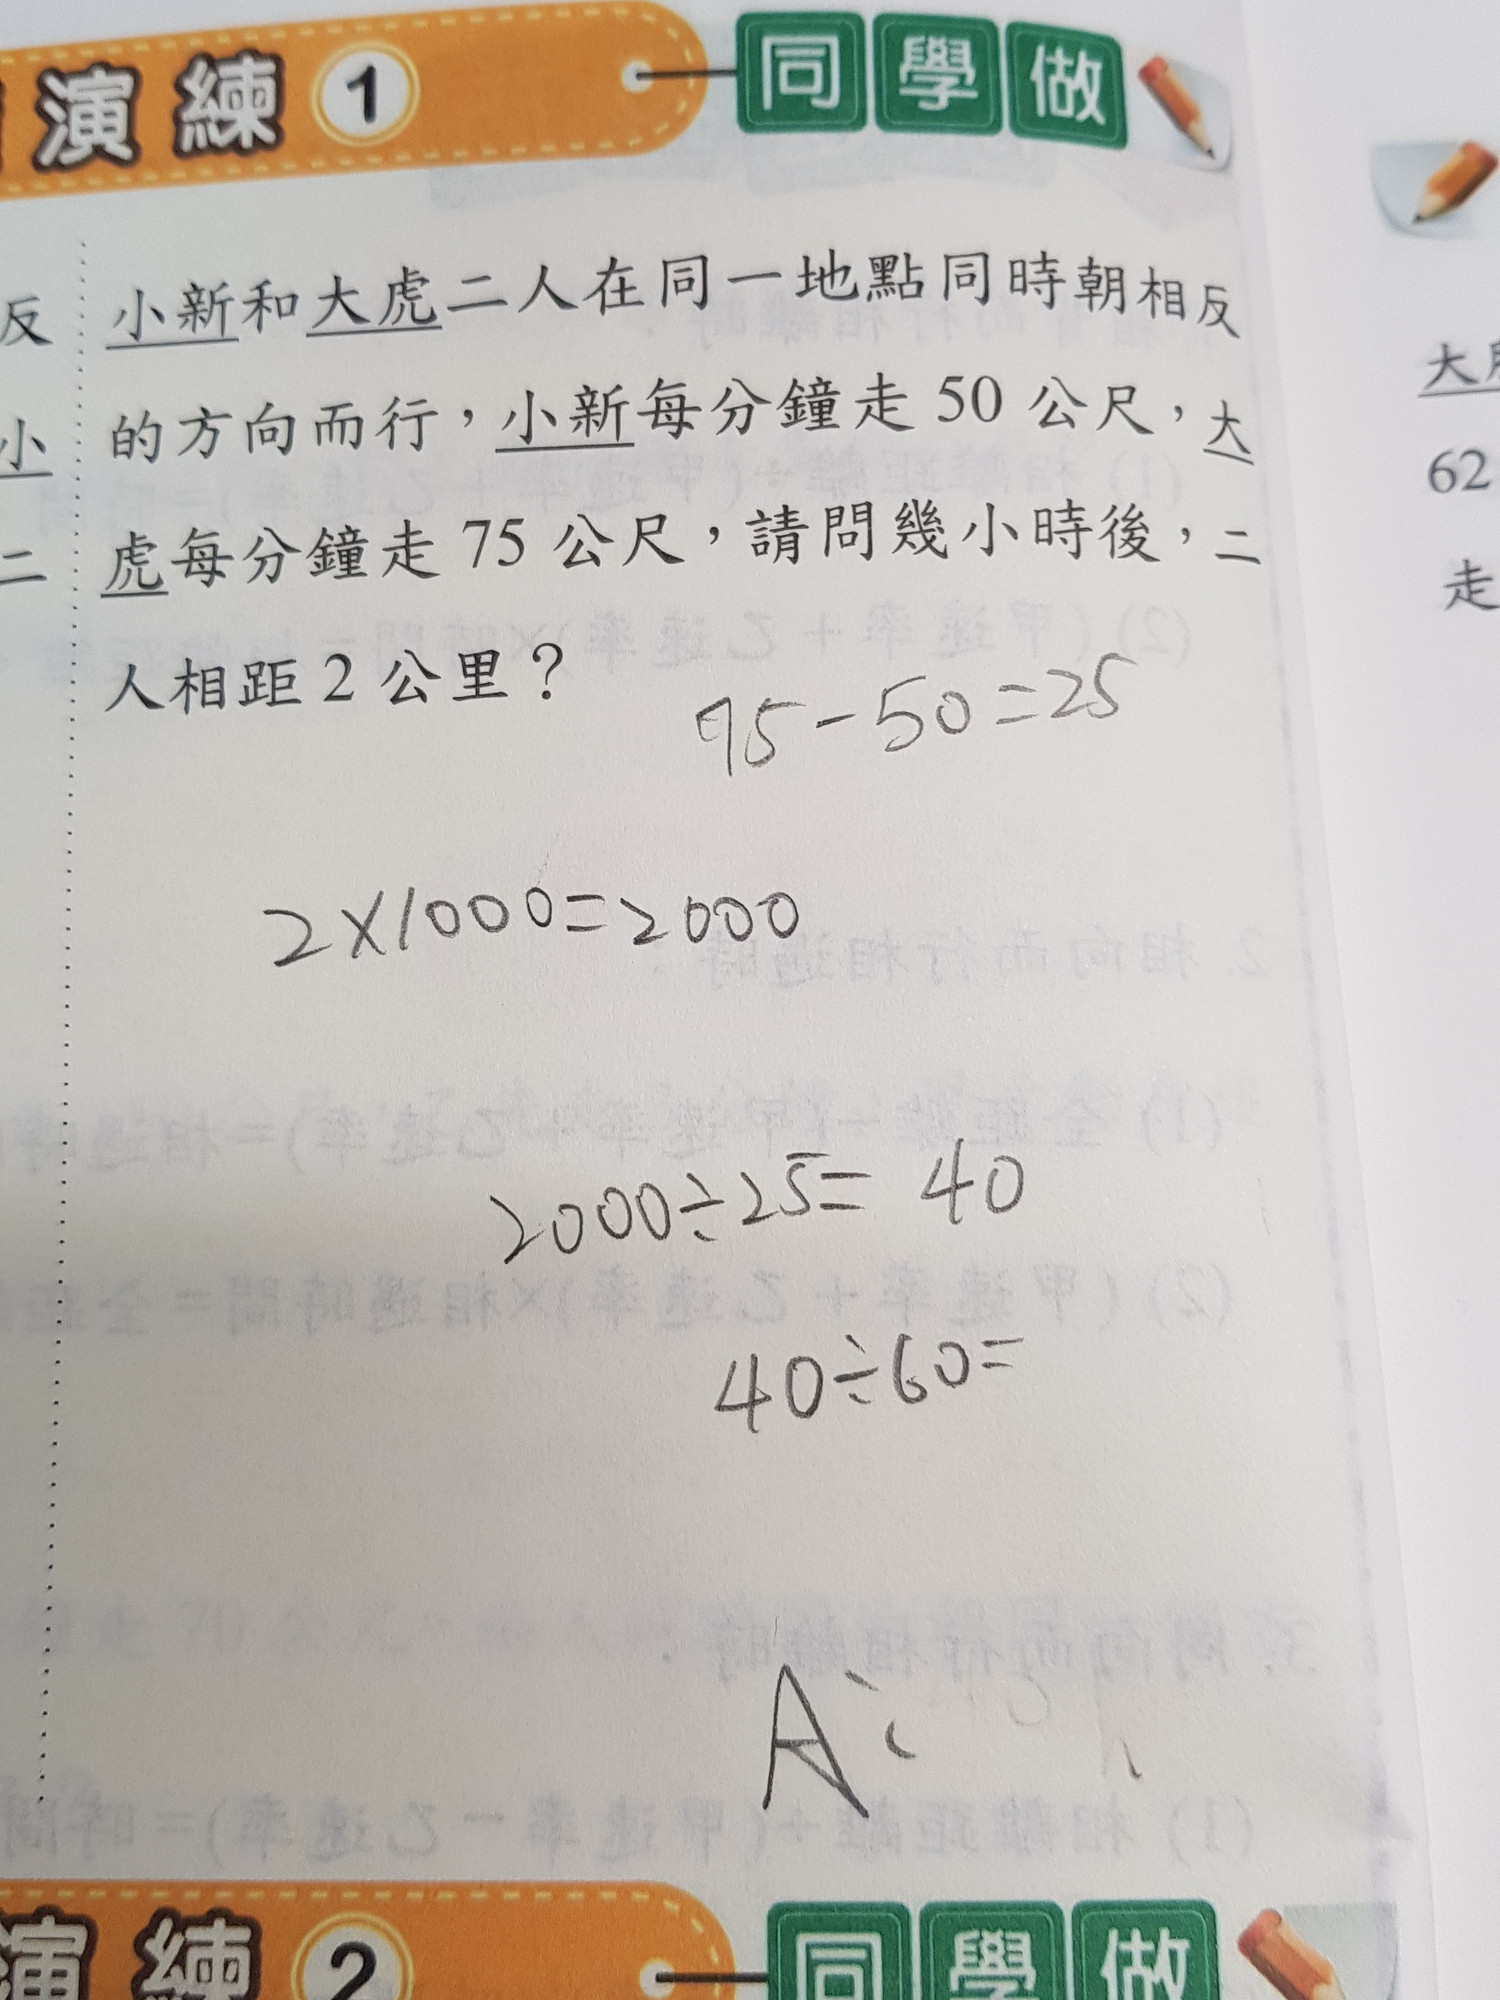 演練 1 同學做
小新和大虎二人在同一地點同時朝相反
的方向而行，小新每分鐘走 50 公尺，大
虎每分鐘走 75 公尺，請問幾小時後，二
人相距 2 公里？
75-50=25
2×1000=2000
2000÷25= 40
40÷60=
A:
演練 2 同學做
反
小
二
大
62
走